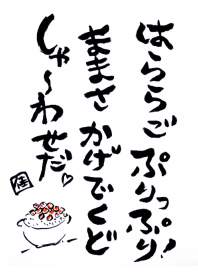 はららご ぷりっぷり!
ままさ かげでくど
しゃ〜わせだ♡